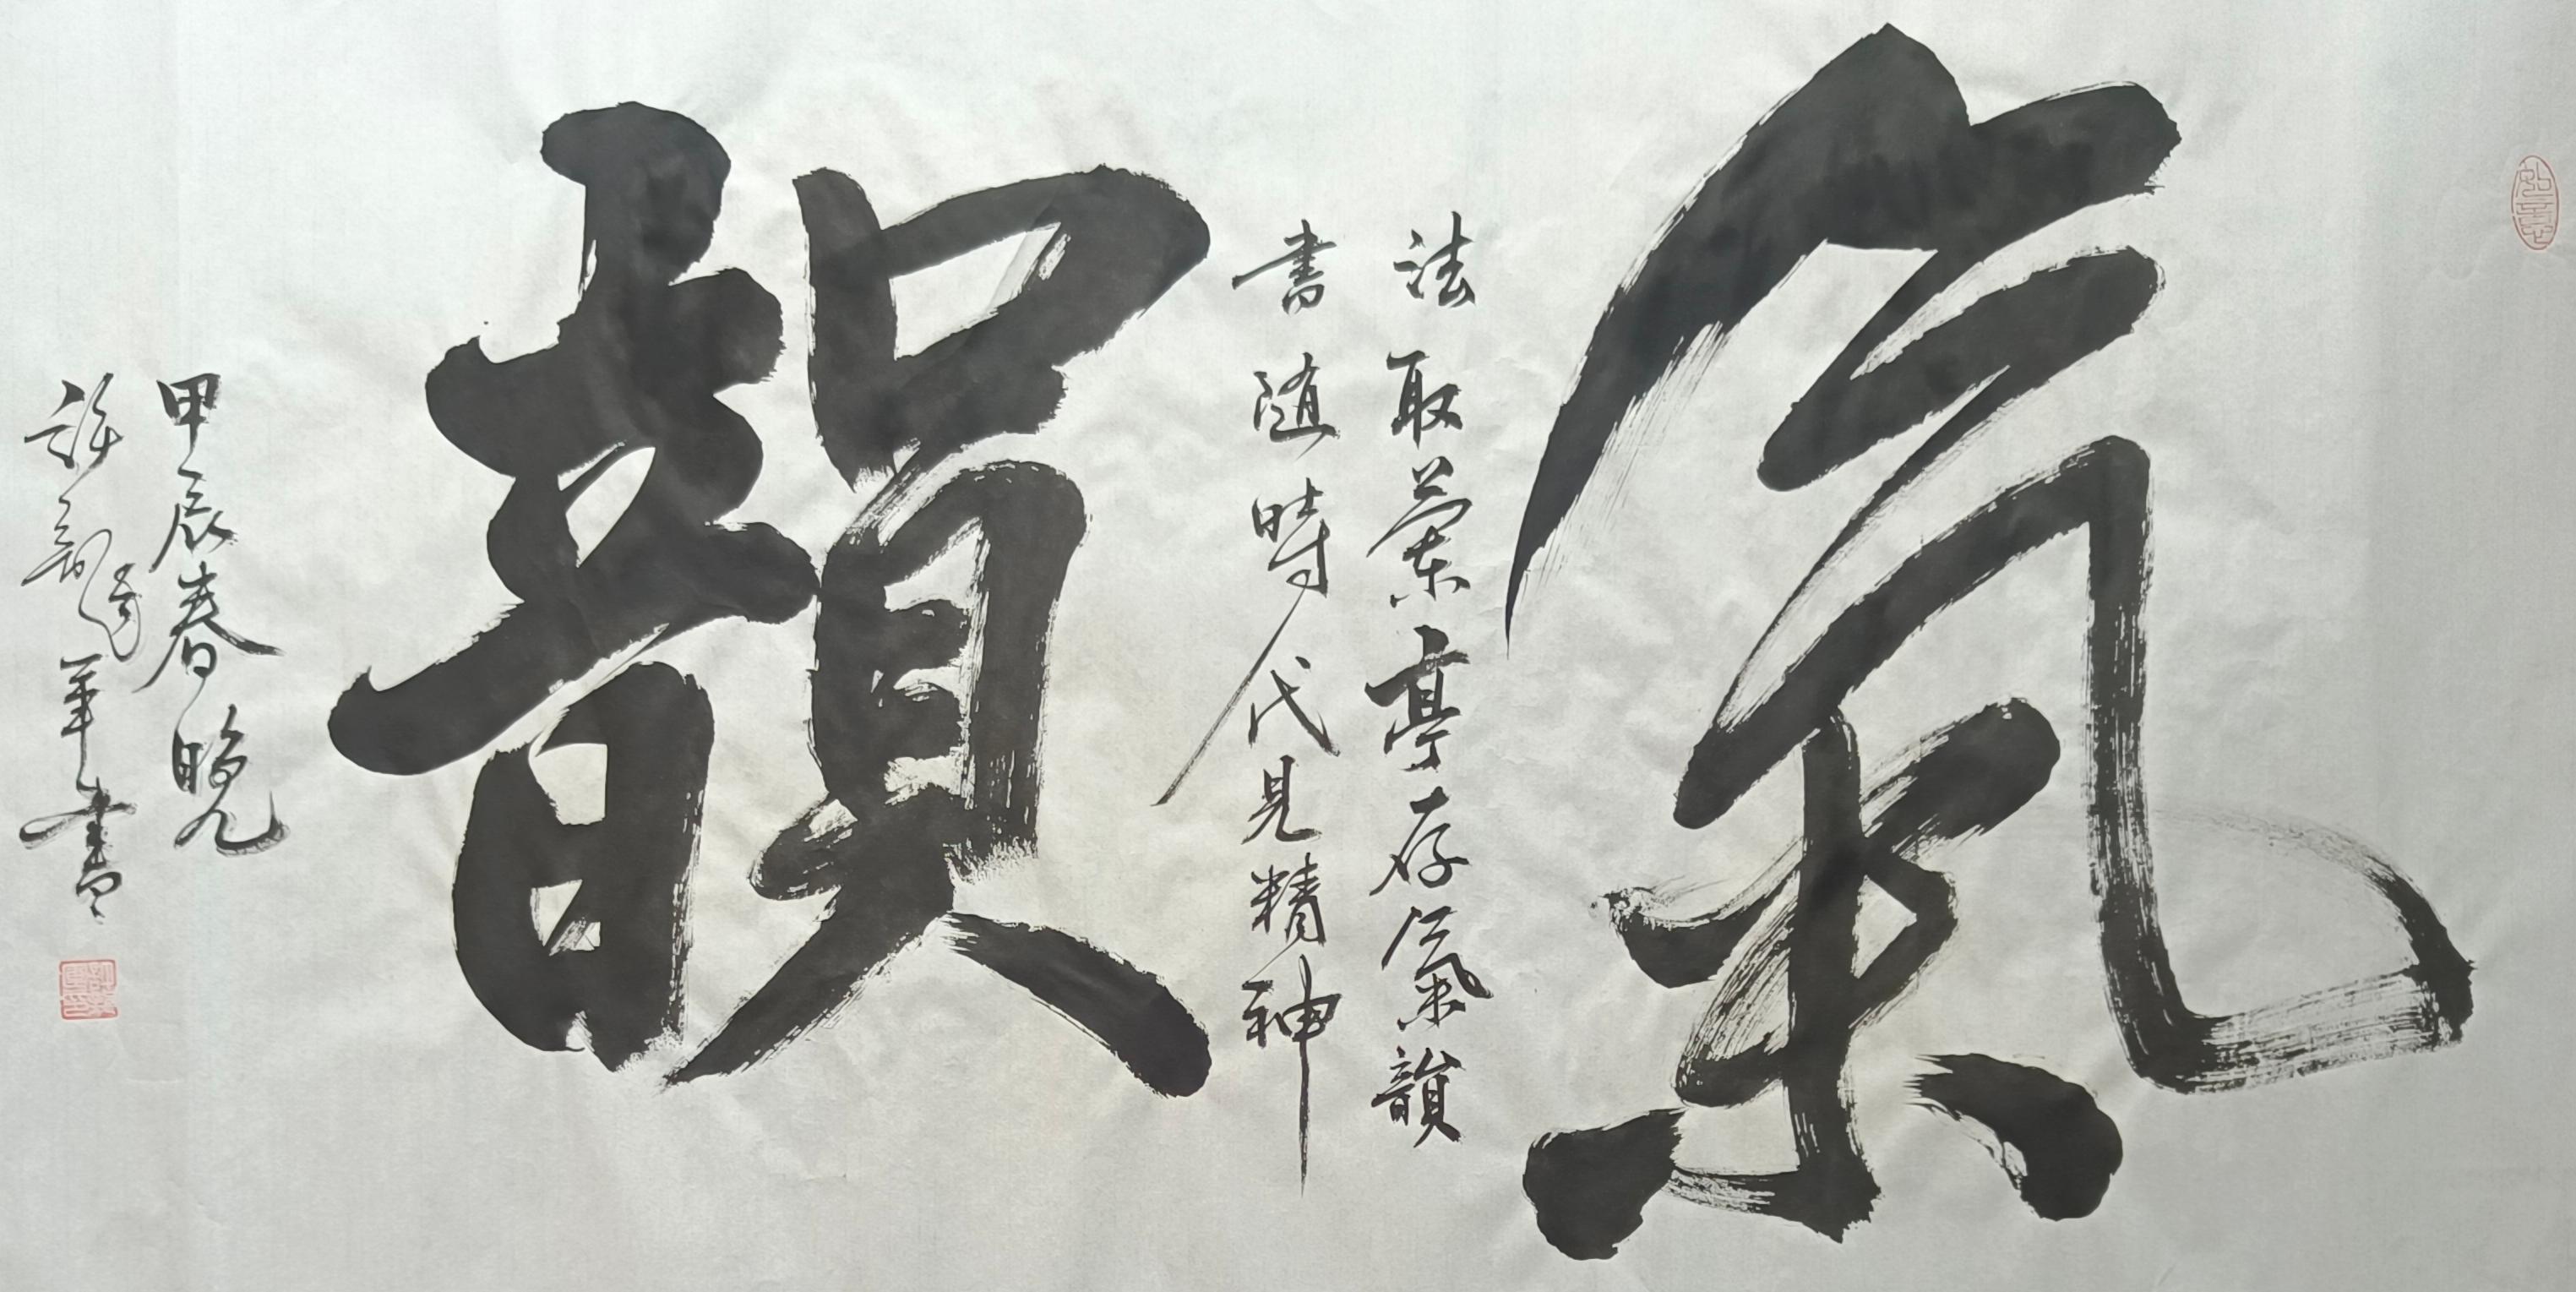 氣
法取蘭亭存氣韻
書随時代見精神
韻
甲辰春晚
許 年書